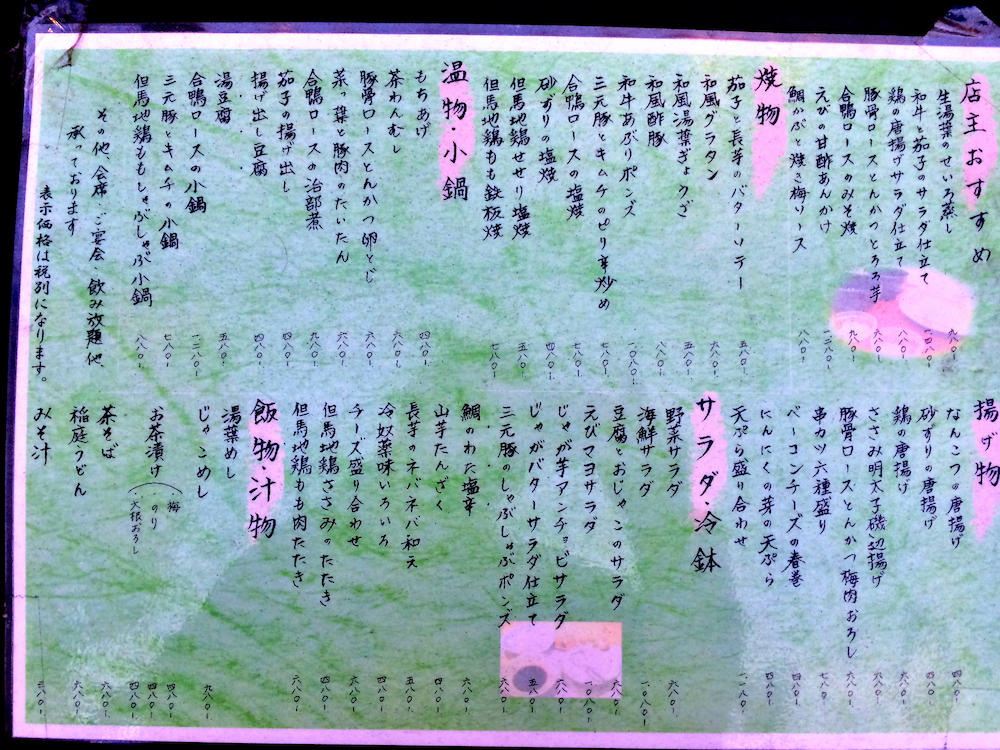 店主おすすめ
生湯葉のせいろ蒸し 九八〇-
和牛と茄子のサラダ仕立て 一〇八〇-
鶏の唐揚げサラダ仕立て 八八〇-
豚骨ロースとんかつとろろ芋 六八〇-
合鴨ロースのみそ焼 九八〇-
えびの甘酢あんかけ 一二八〇-
鯛かぶと焼き梅ソース 八八〇-
焼物
茄子と長芋のバターソテー 五八〇-
和風グラタン 六八〇-
和風湯葉ぎょうざ 五八〇-
和風酢豚 八八〇-
和牛あぶりポンズ 一〇八〇-
三元豚とキムチのピリ辛炒め 七八〇-
合鴨ロースの塩焼 七八〇-
砂ずりの塩焼 四八〇-
但馬地鶏せせり塩焼 五八〇-
但馬地鶏もも鉄板焼 七八〇-
温物・小鍋
もちあげ 四八〇-
茶わんむし 六八〇-
豚骨ロースとんかつ卵とじ 六八〇-
菜っ葉と豚肉のたいたん 六八〇-
合鴨ロースの治部煮 九八〇-
茄子の揚げ出し 四八〇-
揚げ出し豆腐 四八〇-
湯豆腐 五八〇-
合鴨ロースの小鍋 一二八〇-
三元豚とキムチの小鍋 七八〇-
但馬地鶏ももしゃぶしゃぶ小鍋 八八〇-
その他、会席、ご宴会、飲み放題他、
承っております
表示価格は税別になります。
揚げ物
なんこつの唐揚げ 四八〇-
砂ずりの唐揚げ 四八〇-
鶏の唐揚げ 六八〇-
ささみ明太子磯辺揚げ 六八〇-
豚骨ロースとんかつ梅肉おろし 六八〇-
串カツ六種盛り 七八〇-
ベーコンチーズの春巻 四八〇-
にんにくの芽の天ぷら 四八〇-
天ぷら盛り合わせ 一二八〇-
サラダ・冷鉢
野菜サラダ 六八〇-
海鮮サラダ 一〇八〇-
豆腐とおじゃこのサラダ 六八〇-
えびマヨサラダ 一〇八〇-
じゃが芋アンチョビサラダ 六八〇-
じゃがバターサラダ仕立て 五八〇-
三元豚のしゃぶしゃぶポンズ 六八〇-
鯛のわた塩辛 六八〇-
山芋たんざく 四八〇-
長芋のネバネバ和え 五八〇-
冷奴薬味いろいろ 四八〇-
チーズ盛り合わせ 六八〇-
但馬地鶏ささみのたたき 四八〇-
但馬地鶏もも肉たたき 六八〇-
飯物・汁物
湯葉めし
じゃこめし 九八〇-
お茶漬け
梅 四八〇-
のり 四八〇-
大根おろし 四八〇-
茶そば 六八〇-
稲庭うどん 六八〇-
みそ汁 三八〇-